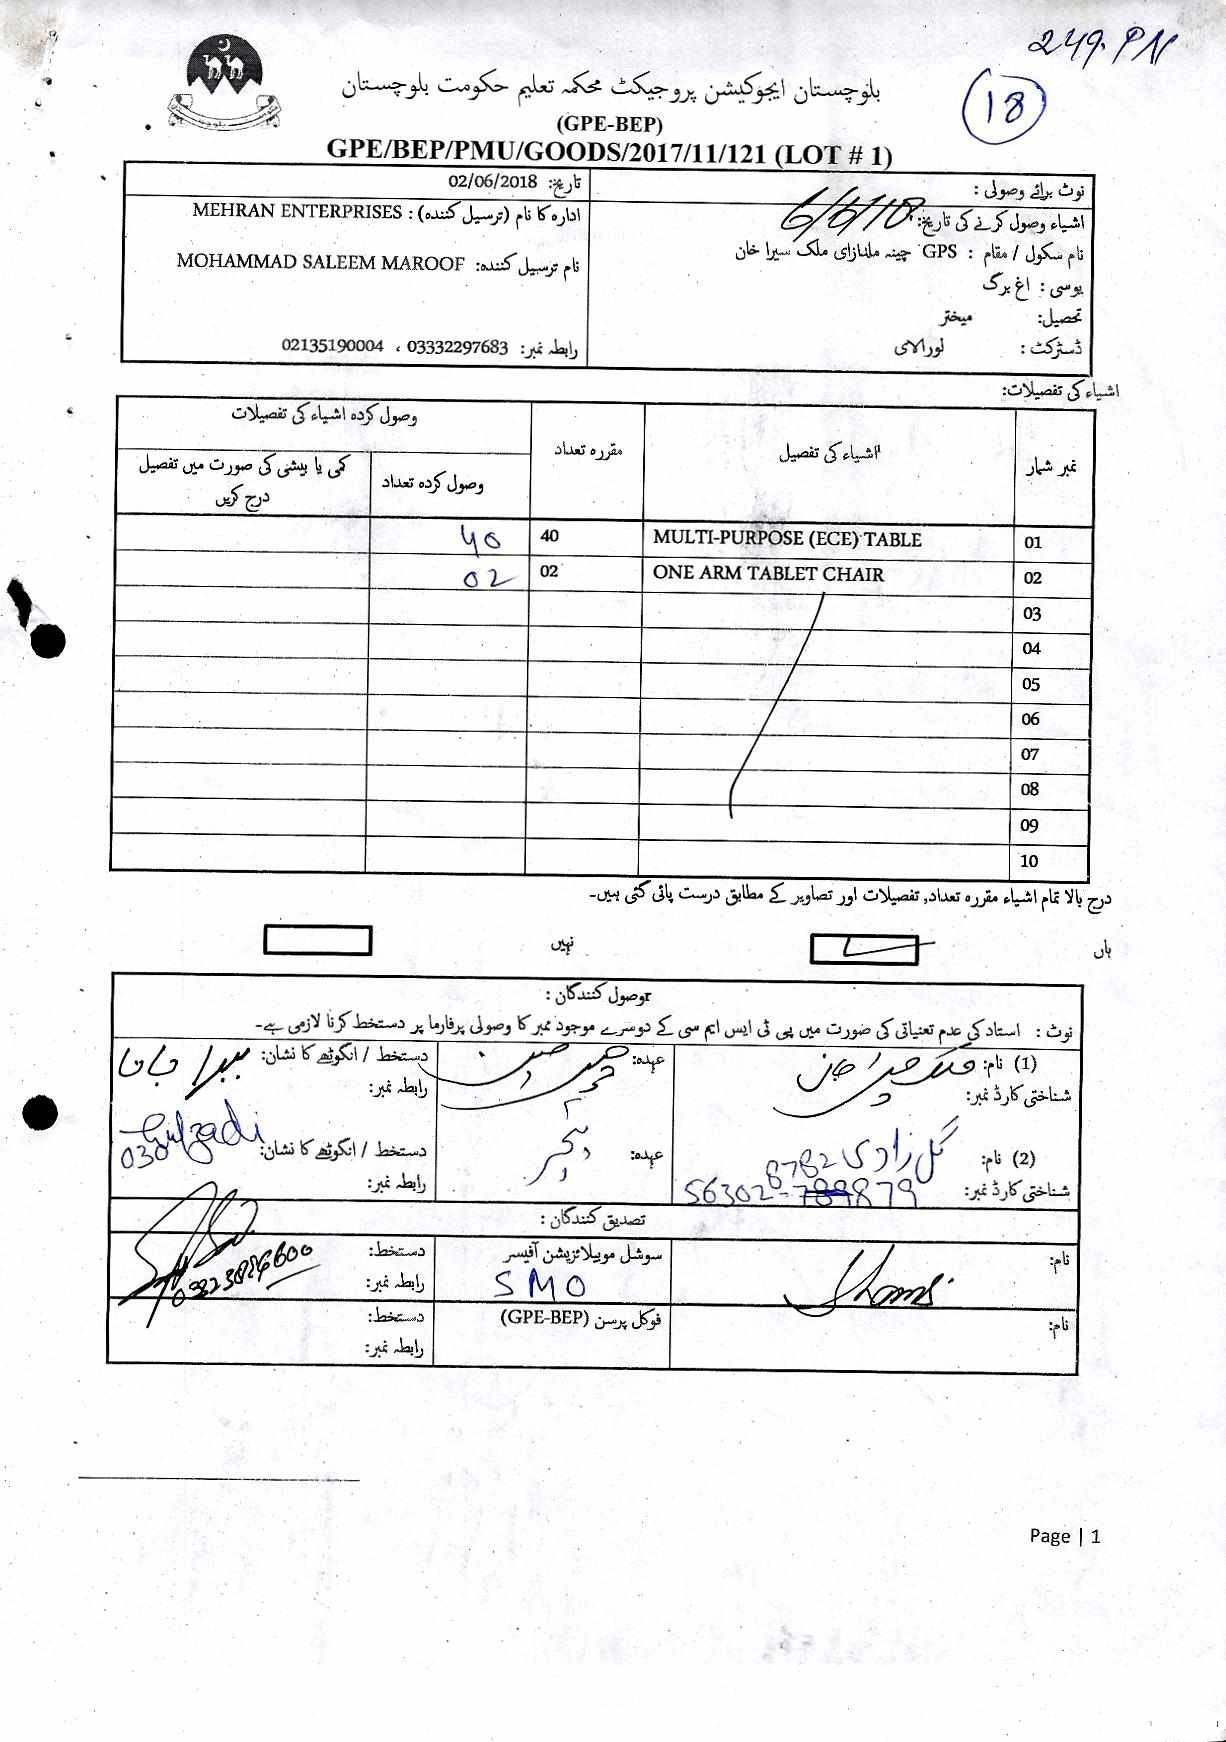 249.PN
18
بلوچستان ایجوکیشن پروجیکٹ محکمہ تعلیم حکومت بلوچستان
(GPE-BEP)
GPE/BEP/PMU/GOODS/2017/11/121 (LOT # 1)
نوٹ برائے وصولی :
تاریخ: 02/06/2018
اشیاء وصول کرنے کی تاریخ: 6/6/18
ادارہ کا نام (ترسیل کنندہ) : MEHRAN ENTERPRISES
نام سکول / مقام : GPS چینہ ملنازای ملک سیرا خان
نام ترسیل کنندہ: MOHAMMAD SALEEM MAROOF
یوسی : اغ برگ
تحصیل: میختر
ڈسٹرکٹ : لورالای
رابطہ نمبر: 03332297683 ، 02135190004
اشیاء کی تفصیلات:
نمبر شمار
اشیاء کی تفصیل
مقررہ تعداد
وصول کردہ اشیاء کی تفصیلات
وصول کردہ تعداد
کمی یا بیشی کی صورت میں تفصیل درج کریں
01 MULTI-PURPOSE (ECE) TABLE 40 40
02 ONE ARM TABLET CHAIR 02 02
03
04
05
06
07
08
09
10
درج بالا تمام اشیاء مقررہ تعداد, تفصیلات اور تصاویر کے مطابق درست پائی گئی ہیں۔
ہاں
نہیں
وصول کنندگان :
نوٹ : استاد کی عدم تعنیاتی کی صورت میں پی ٹی ایس ایم سی کے دوسرے موجود ممبر کا وصولی پرفارما پر دستخط کرنا لازمی ہے۔
(1) نام: ملک خان
عہدہ:
دستخط / انگوٹھے کا نشان:
شناختی کارڈ نمبر:
رابطہ نمبر:
(2) نام: گل زادی
عہدہ:
دستخط / انگوٹھے کا نشان: Gulzadi
شناختی کارڈ نمبر:
رابطہ نمبر:
تصدیق کنندگان :
نام:
سوشل موبیلائزیشن آفیسر
SMO
دستخط:
رابطہ نمبر:
نام:
فوکل پرسن (GPE-BEP)
دستخط:
رابطہ نمبر:
Page | 1